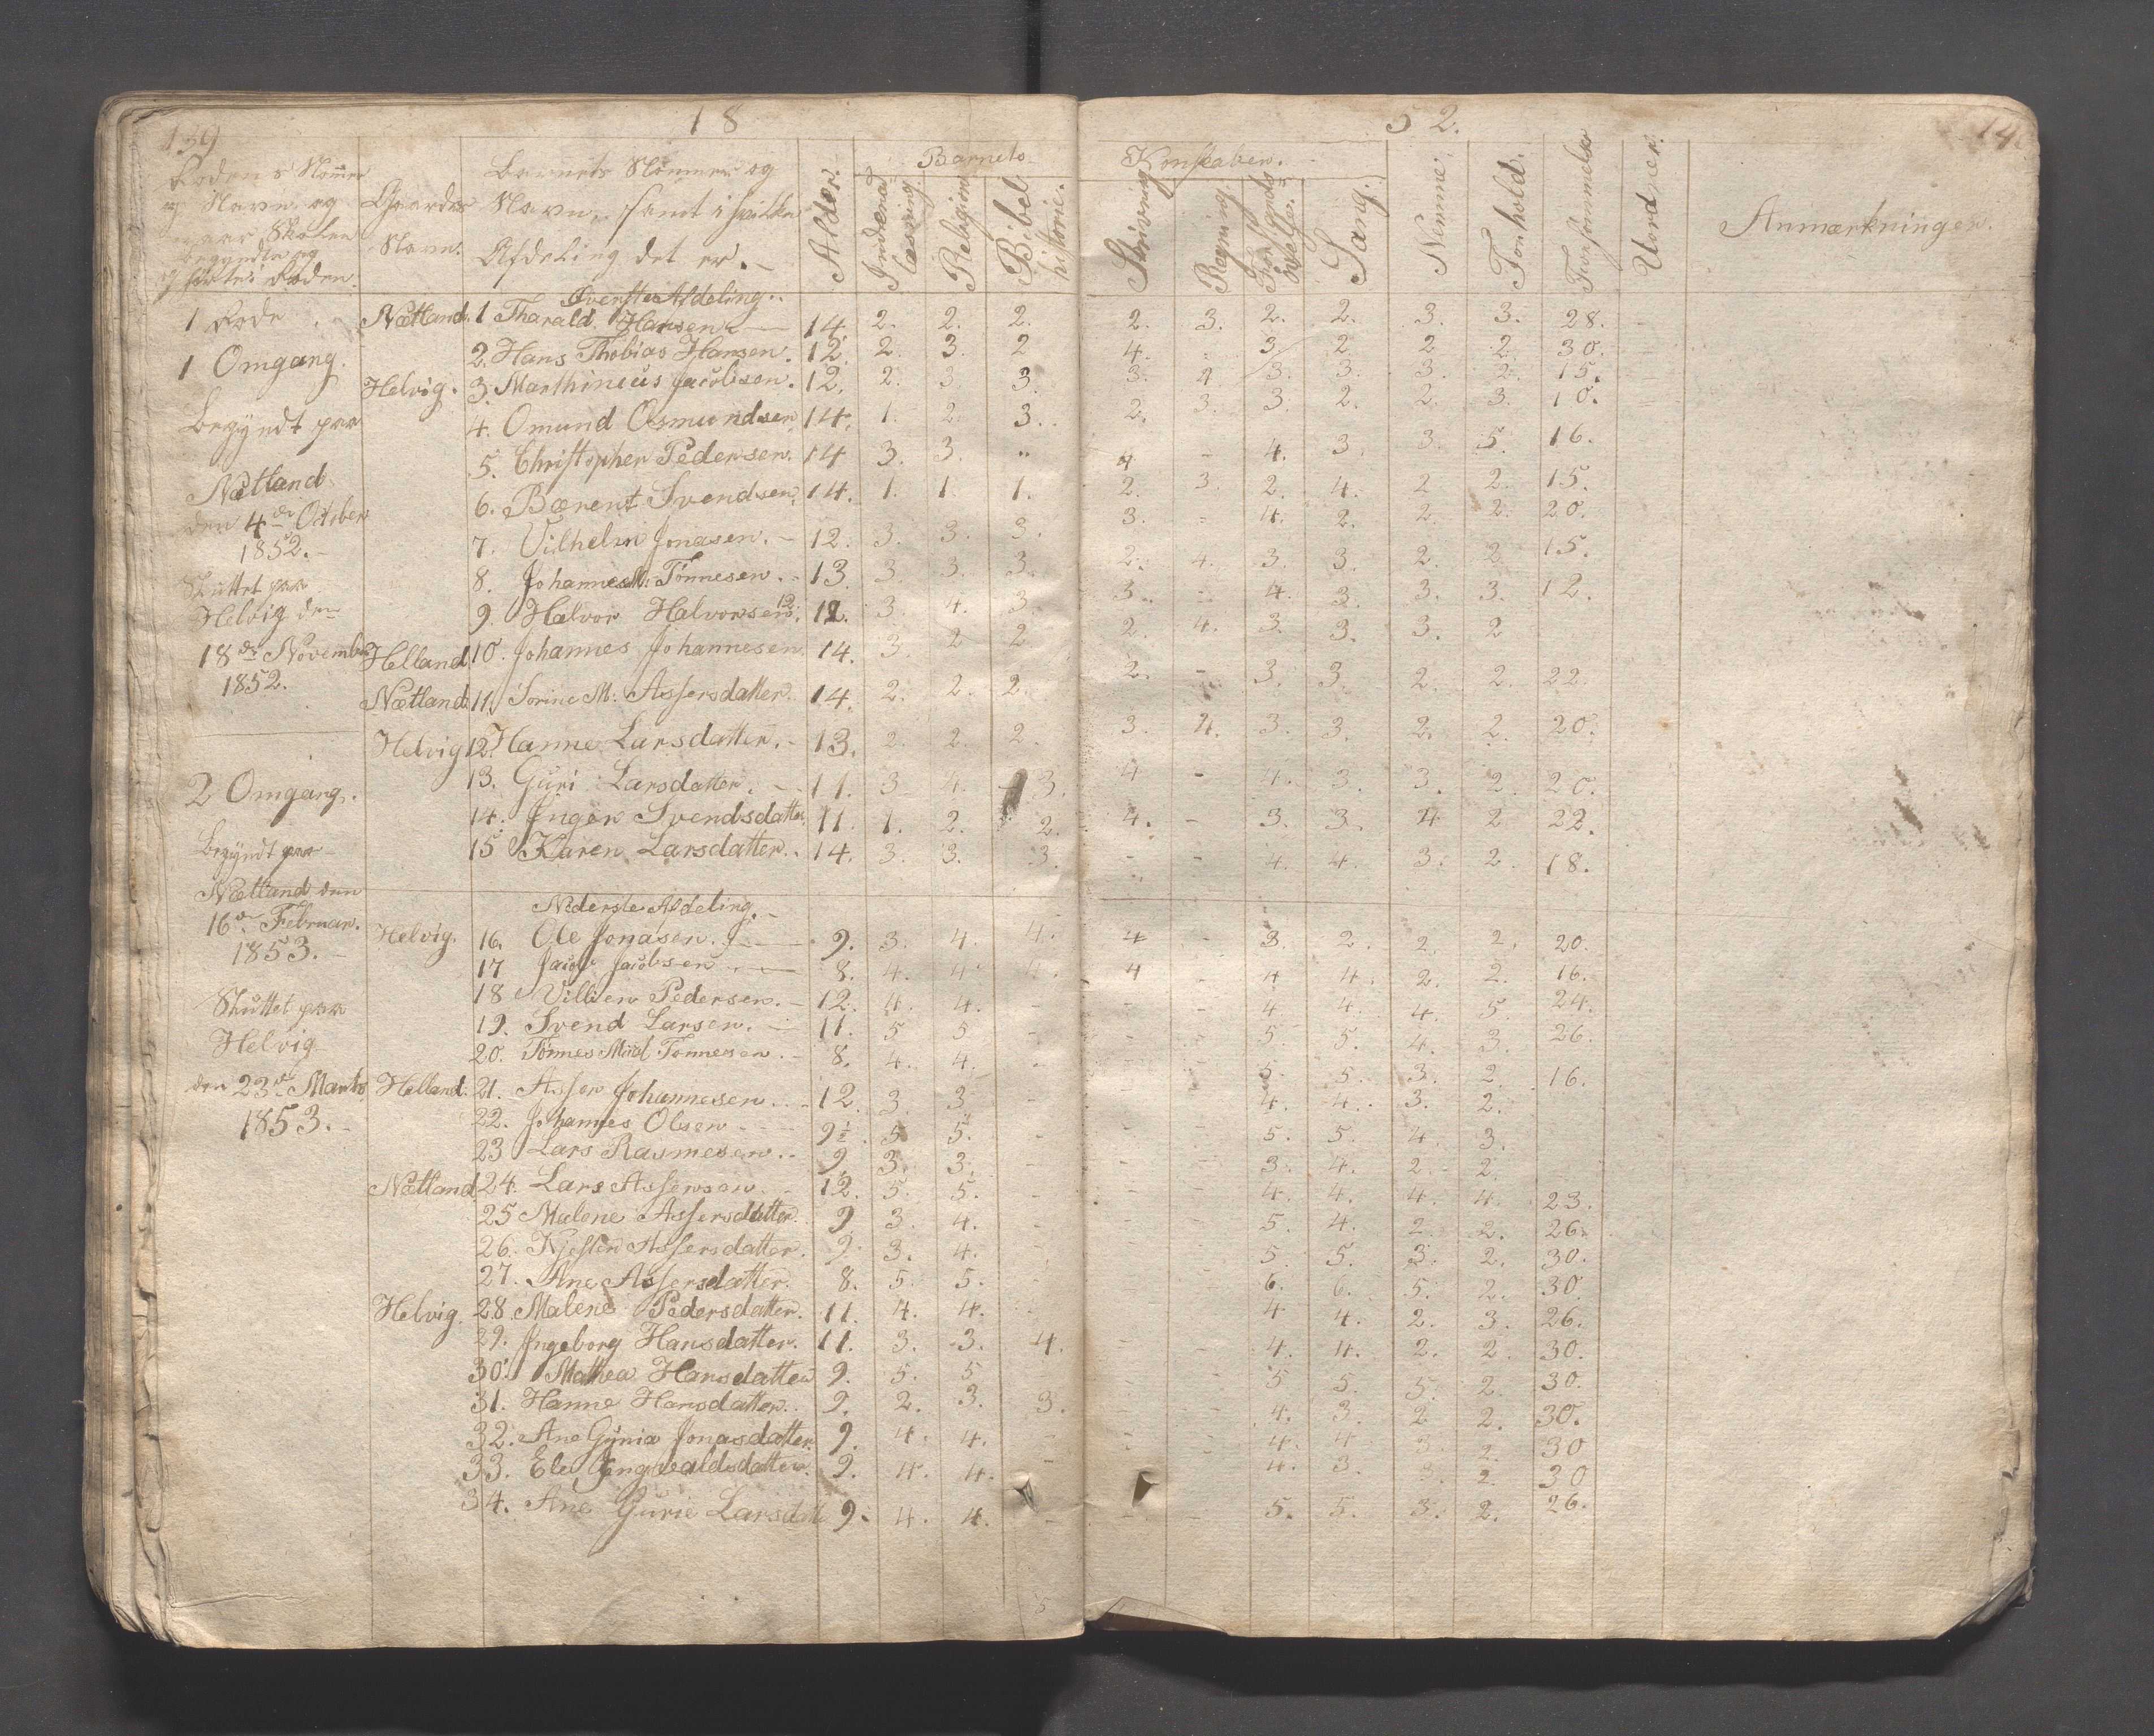 139 18 52. 14
Rodens Nommer og Navn, og naar Skolen begyndte og sluttede i Roden.
Gaardes Navn.
Barnets Nommer og Navn, samt i hvilken Afdeling det er.
Alder.
Barnets Kunskaber.
Indenadlæsning.
Religion
Bibelhistorie.
Skrivning
Regning.
Forstands Øvelse.
Sang.
Nemme.
Forhold.
Forsømmelse
Uord ner.
Anmærkninger.
1 Rode
1 Omgang.
Begyndt paa
Nætland
den 4de October
1852.
Sluttet paa
Helvig den
18de November
1852.
2 Omgang.
Begyndt paa
Nætland den
16de Februar.
1853.
Sluttet paa
Helvig
den 23de Marts
1853.
Øverste Afdeling.
Nætland. 1 Tharald Hansen 14. 2. 2. 2. 2. 3. 2. 2. 3. 3. 28.
2. Hans Thobias Hansen. 12. 2. 3. 2 4. - 3 2 2 2. 30.
Helvig. 3. Marthineus Jacobsen. 12. 2. 3 3. 3. 4 3. 3. 3. 2. 15.
4. Omund Osmundsen 14. 1. 2. 3. 2. 3. 3. 2. 2. 3. 10.
5. Christopher Pedersen. 14 3. 3. " 4 - 4. 3. 3. 5. 16.
6. Bærent Svendsen. 14. 1. 1. 1. 2. 3. 2. 4. 2 2. 15.
7. Vilhelm Jonasen. 12. 3. 3. 3. 3. - 4. 2. 2. 2. 20.
8. Johannes M. Tønnesen. 13 3. 3. 3. 2. 4. 3. 3. 2. 2 15.
9. Halvor Halvorsen. 12 12. 3. 4. 3. 3. - 4. 3. 3. 3. 12.
Helland 10. Johannes Johannesen 14. 3. 2 2 2. 4. 3. 3. 3. 2
Nætland. 11. Sorine M. Assersdatter. 14. 2. 2. 2. 2. - 3. 3. 2. 2. 22.
Helvig 12. Hanne Larsdatter. 13. 2. 2. 2. 3. 4. 3. 3. 2. 2. 20.
13. Guri Larsdatter. 11. 3 4. 3. 4 - 4. 3. 3. 2. 20.
14. Inger Svendsdatter. 11. 1. 2. 2. 4. - 3. 3. 4 2 22.
15 Karen Larsdatter. 14. 3. 3. 3. - - 4. 4. 3. 2. 18.
Nederste Afdeling.
Helvig. 16. Ole Jonasen. 9. 3. 4. 4. 4 - 3. 2. 2. 2. 20.
17 Jacob Jacobsen 8. 4. 4. 4. 4 - 4 4. 2. 2. 16.
18 Villien Pedersen. 12. 4. 4. - - - 4 4. 4. 5. 24.
19. Svend Larsen. 11. 5 5 - - - 5. 5. 4. 3. 26.
20. Tønnes Mød Tønnesen. 8. 4. 4. - - - 5. 5. 3. 2. 16.
Helland. 21. Asser Johannesen. 12. 3. 3. - - - 4. 4. 3. 2.
22. Johannes Olsen 9½. 5 5. - - - 5. 5. 4. 3.
23 Lars Rasmesen. 9 3. 3. - - - 3. 4. 2. 2.
Nætland 24. Lars Assersen 12. 5. 5. - - - 4. 4. 4. 4. 23.
25 Malene Assersdatter. 9 3. 4. - - - 5. 4. 2. 2. 26.
26. Kjesten Assersdatter. 9. 3. 4. - - - 5. 5. 3. 2. 30.
27. Ane Assersdatter. 8. 5. 5. - - - 6. 6. 5. 2. 30.
Helvig. 28. Malene Pedersdatter. 11. 4. 4. - - - 4 4. 2. 3. 26.
29. Ingeborg Hansdatter. 11. 3. 3. 4. - - 4. 4. 2. 2. 30.
30. Mathea Hansdatter 9. 5. 5 - - - 5 5. 5. 2. 30.
31. Hanne Hansdatter. 9. 2. 3. 3. - - 4. 3. 2 2. 30.
32. Ane Gynia Jonasdatter. 9. 4. 4. - - - 4. 4 3. 2. 30
33. Ele Ingwaldsdatter. 9. 4. 4. - - - 4. 3. 3. 2. 30
34. Ane Gurie Larsdatt 9. 4. 4. - - - 5. 5. 3. 2. 26.